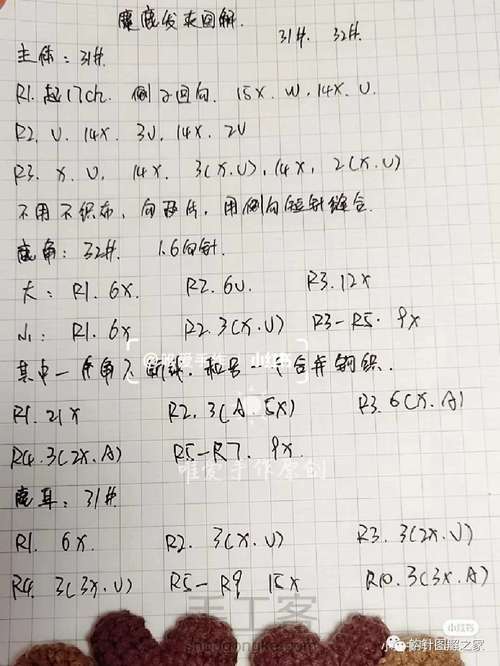 麋鹿发夹图解.
31#. 32#.
主体: 31#.
R1. 起17ch. 倒2回向. 15X. W. 14X. V.
R2. V. 14X. 3V. 14X. 2V
R3. X. V. 14X. 3(X.V), 14X, 2(X.V)
不用不织布, 勾两片, 用侧向短针缝合.
鹿角: 32#. 1.6勾针.
大: R1. 6X. R2. 6V. R3. 12X
小: R1. 6X R2. 3(X.V) R3-R5. 9X
其中一角不断线, 和另一个合并钩织.
R1. 21X R2. 3(A. 5X) R3. 6(X.A)
R4. 3(2X.A) R5-R7. 9X.
唯爱手作原创
鹿耳: 31#.
R1. 6X. R2. 3(X.V) R3. 3(2X.V)
R4. 3(3X.V) R5-R9 15X R10. 3(3X.A)
手工客
小红书
钩针图解之家